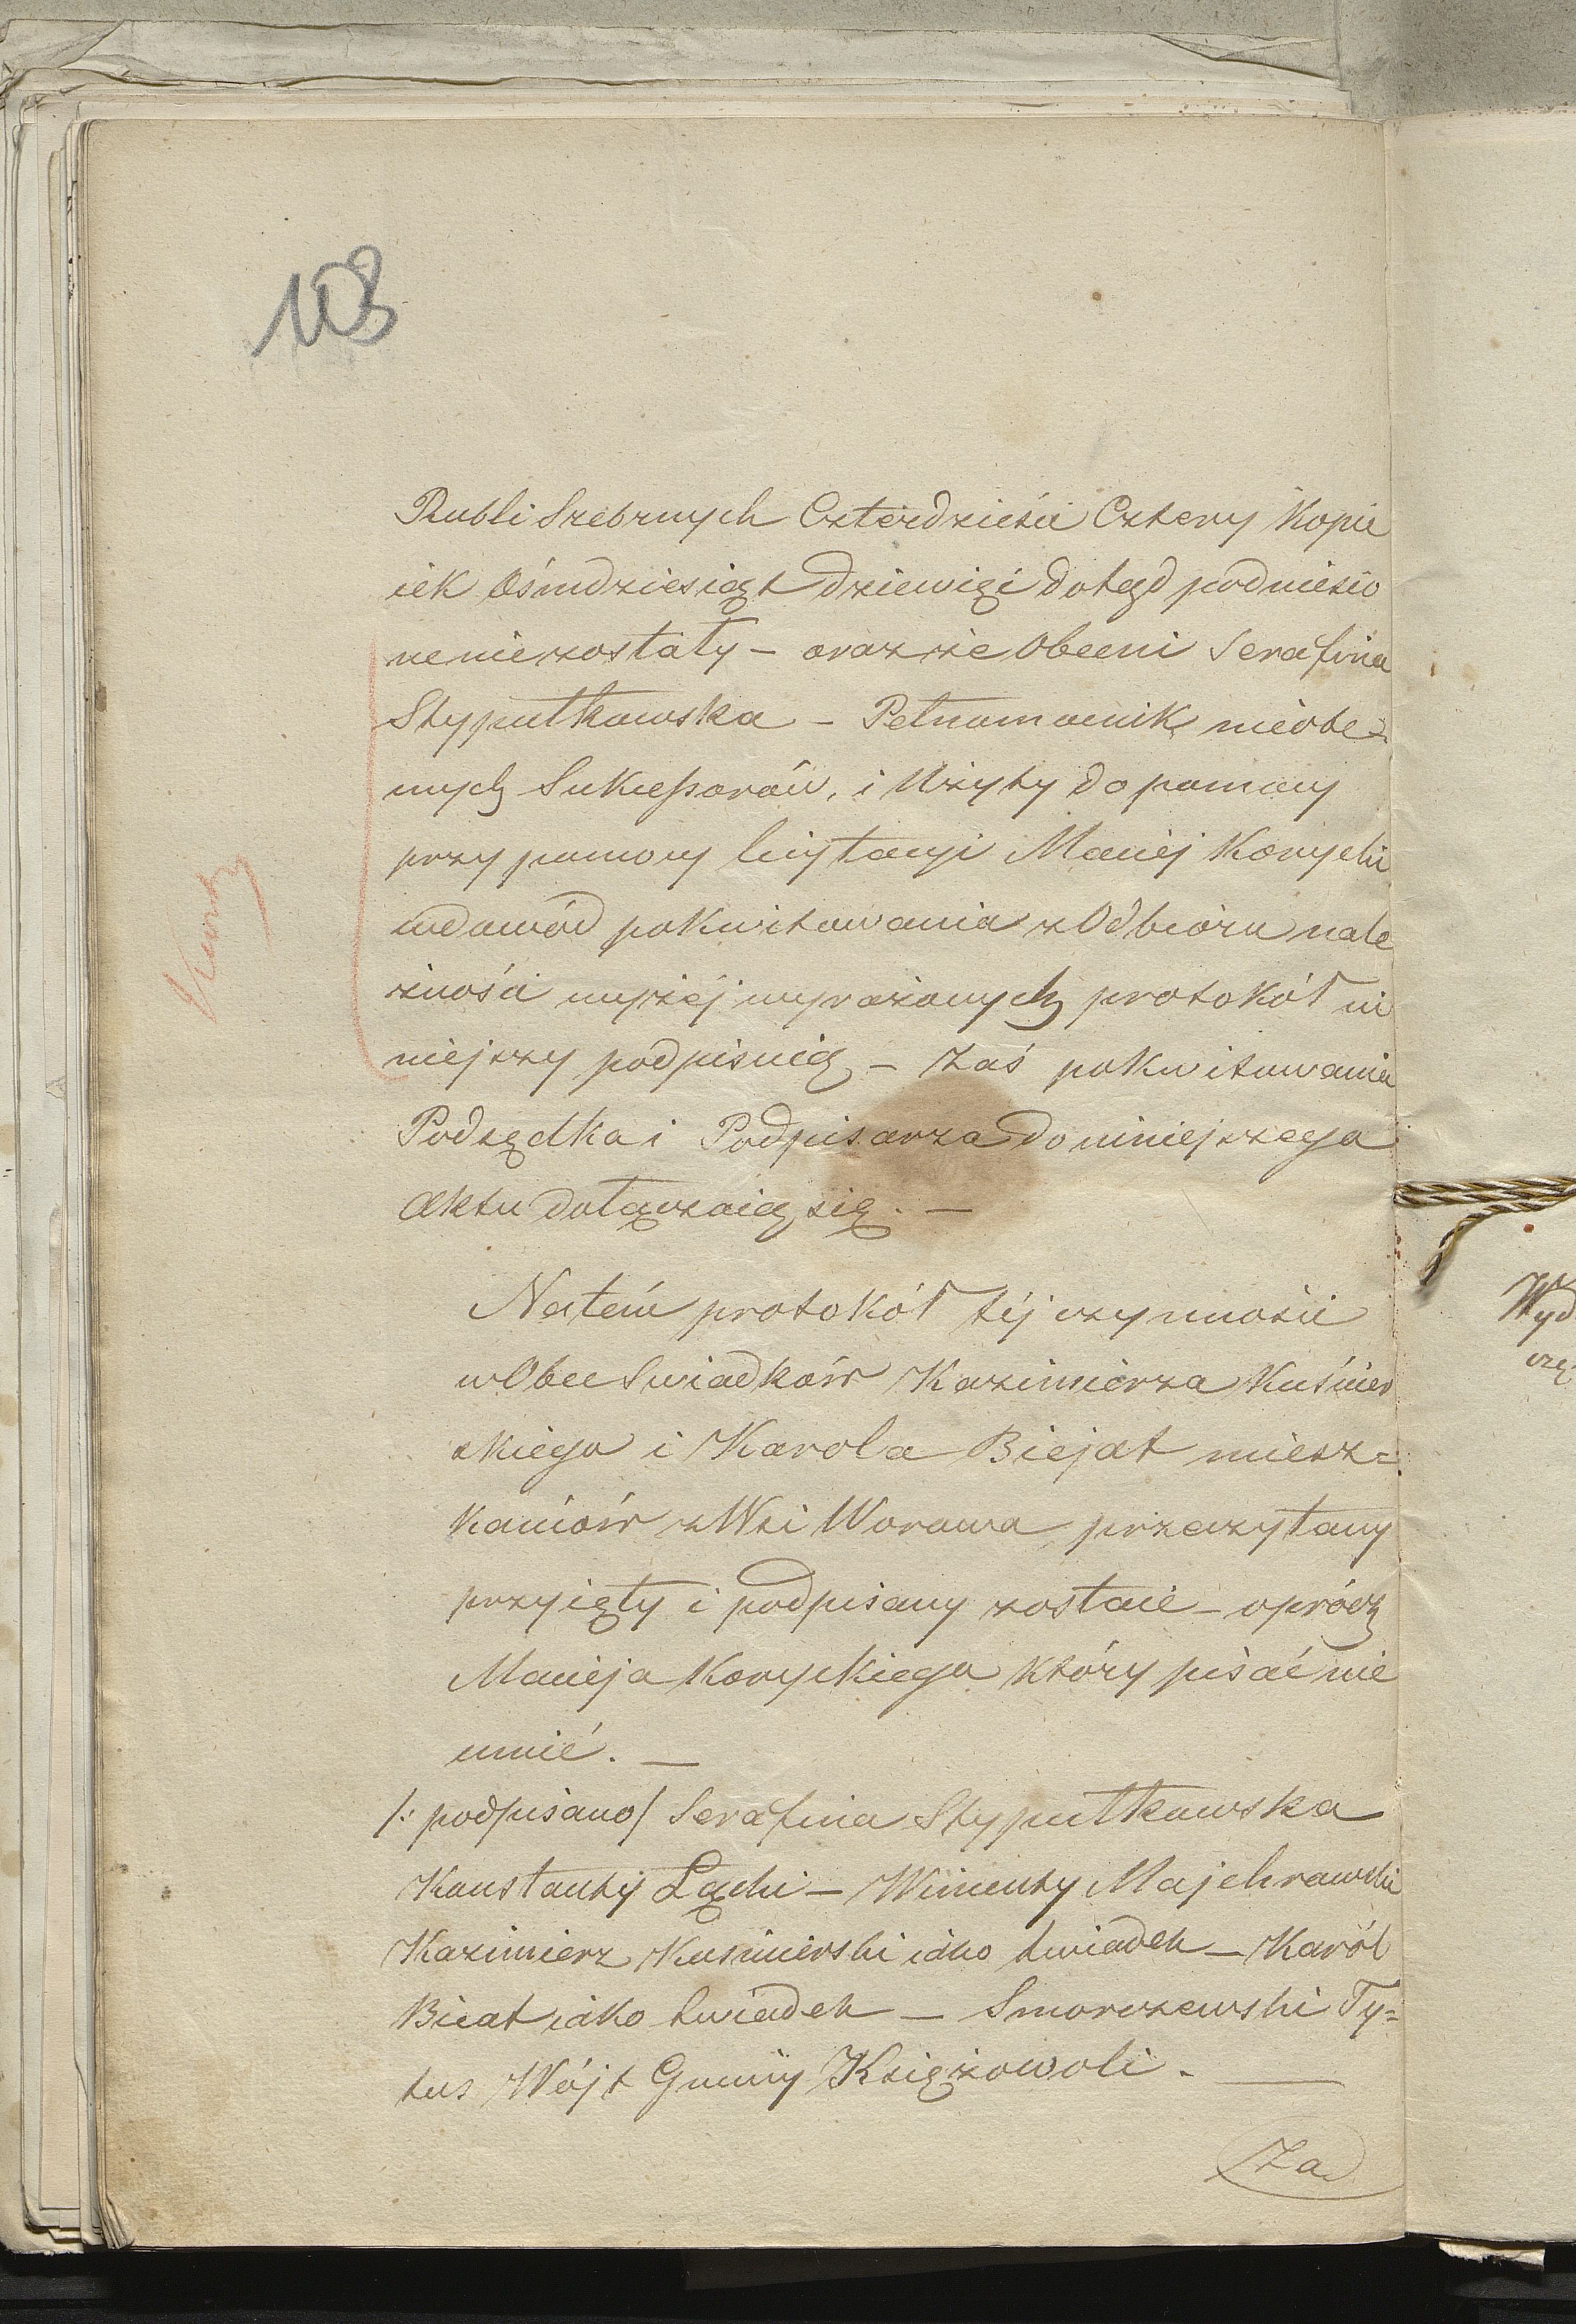 108
Rubli Srebrnych Czterdzieści Cztery Kopie
iek Ośmdziesiąt dziewięć dotąd podniesio
ne nie zostały – oraz że Obecni Serafina
Stypułkowska – Pełnomocnik nieobe=
cnych Sukceßorów, i Użyty do pomocy
przy pomocy licytacyi Maciej Korycki
wdowód pokwitowania z Odbioru nale
żności wyżéj wyrażonych protokół ni
niejszy podpisuią – Zaś pokwitowania
Podsędka i Podpisarza do niniejszego
Aktu dołączaią się. —
Natém protokół téj czynności
w Obec Swiadków Kazimierza Kuśmier
skiego i Karola Biejat miesz=
kańców z Wsi Worowa przeczytany
przyięty i podpisany zostaie – oprócz
Macieja Koryckiego który pisać nie
umié. —
/: podpisano/ Serafina Stypułkowska
Konstanty Łącki – Wincenty Majchrowski
Kazimierz Kusmierski iako swiadek – Karól
Bieat iako swiadek – Smorczewski Ty=
tus Wójt Gminy Księżowoli. —
Za
Wyd